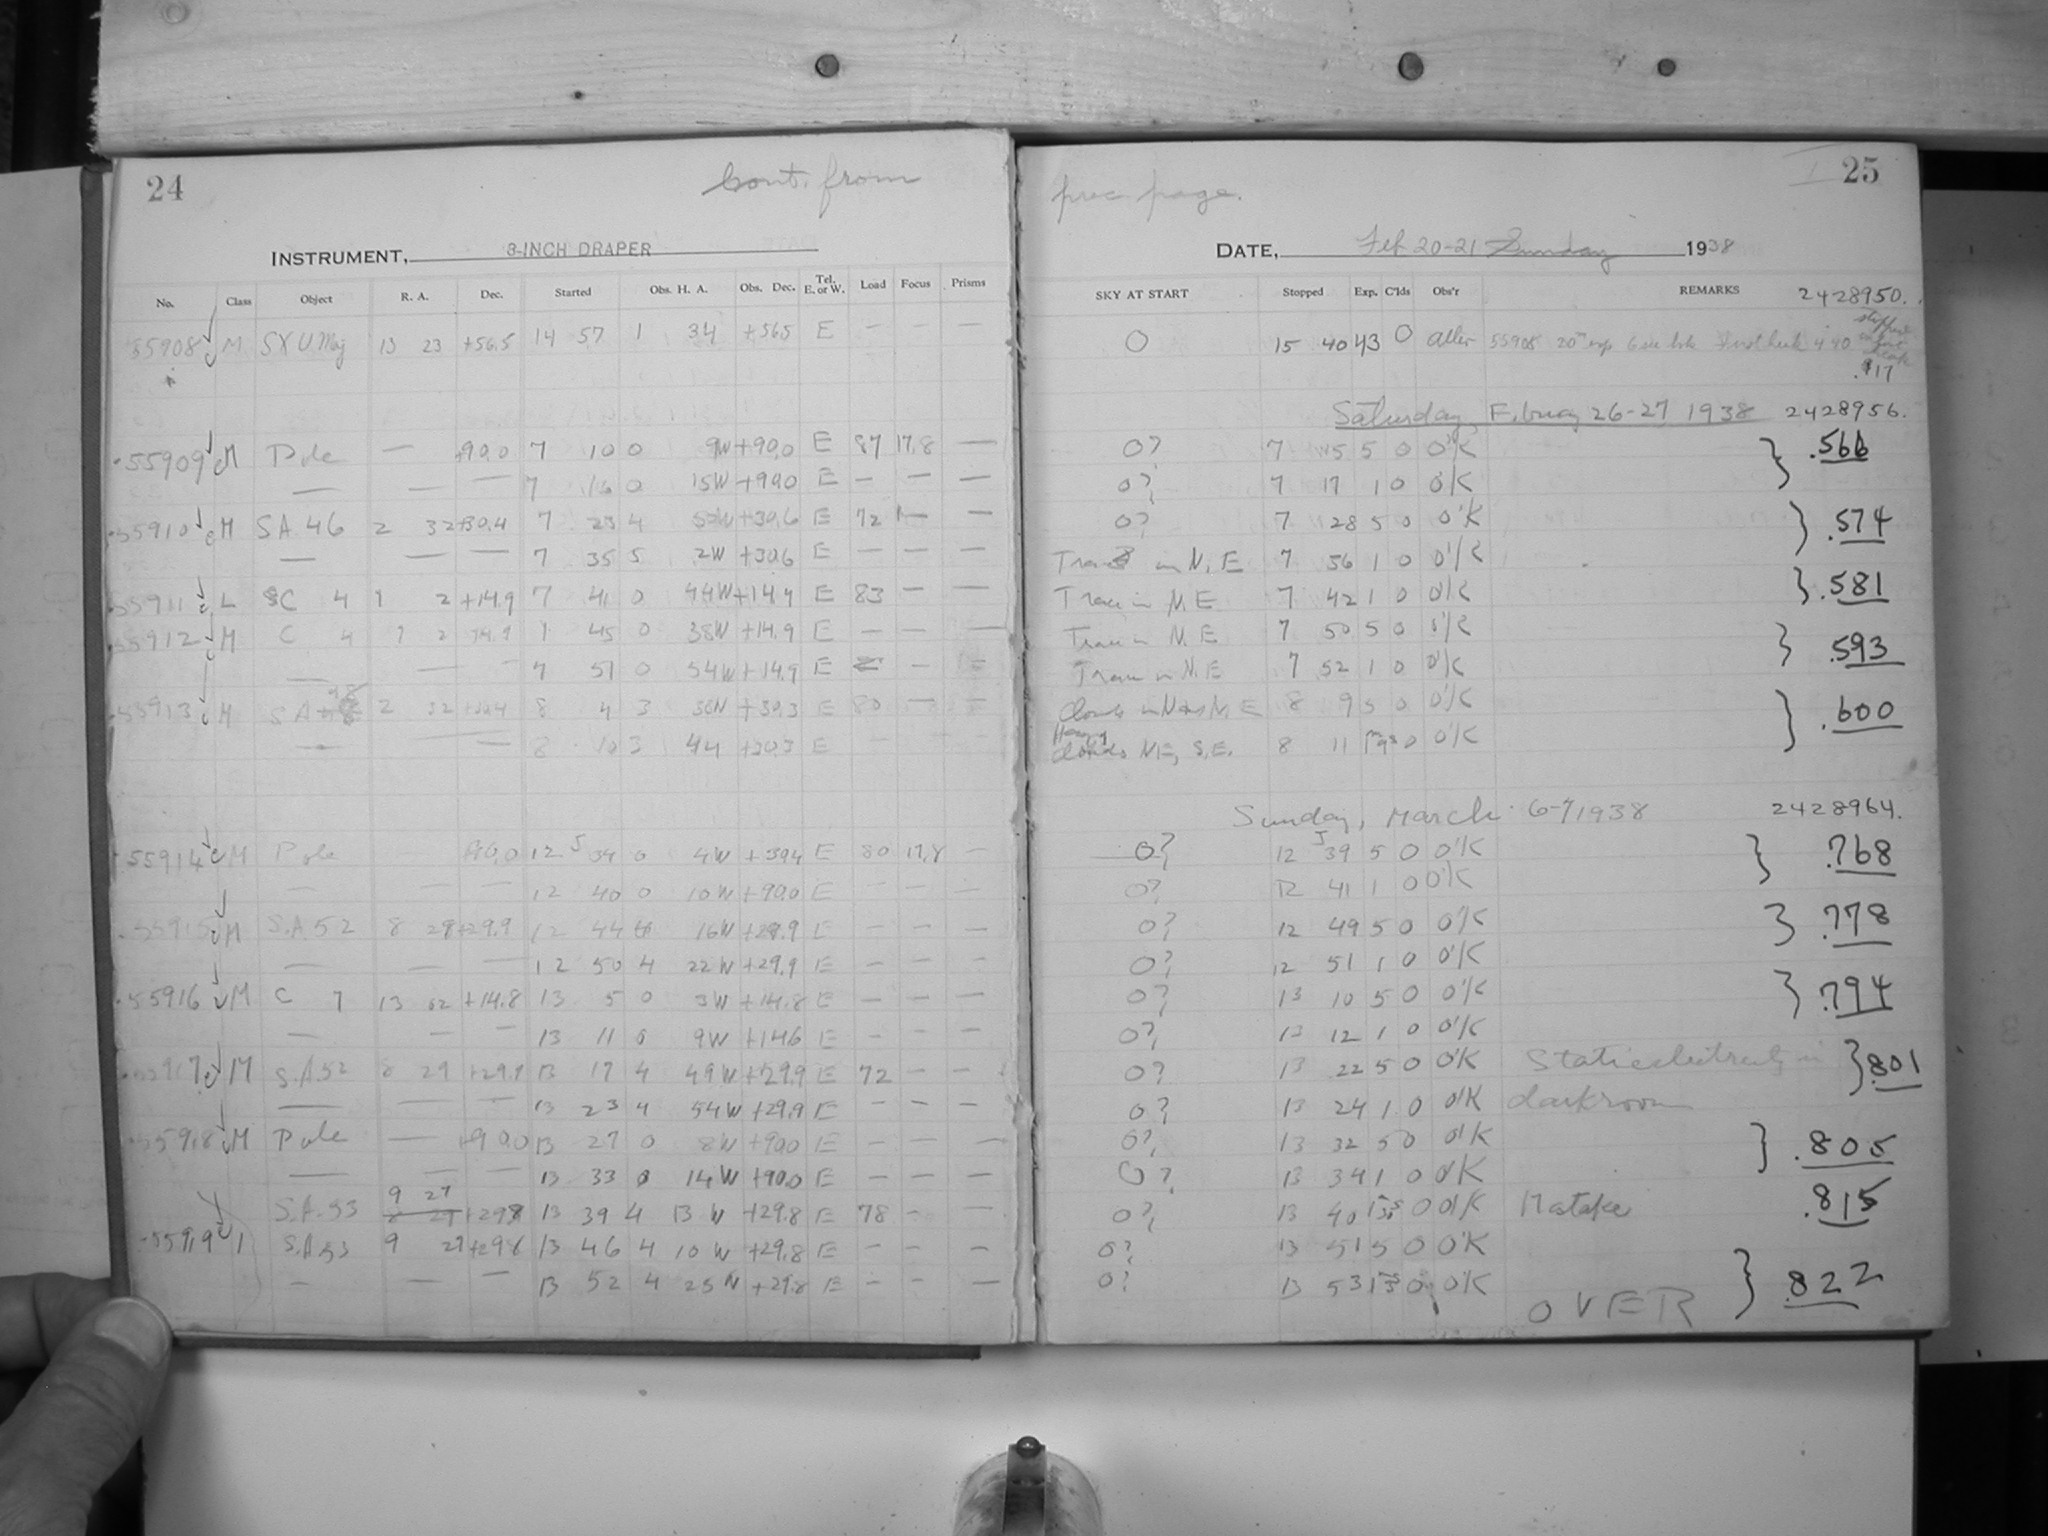 24
Cont. from
INSTRUMENT, 8-INCH DRAPER
No. Class Object R. A. Dec. Started Obs. H. A. Obs. Dec. Tel. E. or W. Load Focus Prisms
55908 M 13 23 +56.5 14 57 1 34 +56.5 E — — —
55909 M Pole — +90.0 7 10 0 9W +90.0 E 87 17.8 —
— — — 7 16 0 15W +90.0 E — — —
55910 M SA 46 2 32 +30.4 7 23 4 +30.6 E 72 — —
— — — 7 35 5 2W +30.6 E — — —
55911 L SC 4 7 2 +14.9 7 41 0 44W +14.9 E 83 — —
55912 M C 4 7 2 +14.9 7 45 0 38W +14.9 E — — —
— — — 7 51 0 54W +14.9 E — —
55913 M SA 2 32 +30.4 8 4 3 36W +30.3 E 80 — —
— — 8 10 3 44 +30.3 E — — —
55914 M Pole +90.0 12 34 0 4W E 80 17.8 —
— — — 12 40 0 10W +90.0 E — — —
55915 M S.A 52 8 29 +29.9 12 44 4 16W +29.9 E — — —
— — — 12 50 4 22W +29.9 E — — —
55916 M C 7 13 02 +14.8 13 5 0 3W +14.8 E — — —
— — — 13 11 0 9W +14.6 E — — —
55917 M S.A 52 8 29 +29.9 13 17 4 49W +29.9 E 72 — —
— — — 13 23 4 54W +29.9 E — — —
55918 M Pole — +90.0 13 27 0 8W +90.0 E — — —
— — — 13 33 0 14W +90.0 E — — —
9 27
S.A. 53 8 29 +29.8 13 39 4 13 W +29.8 E 78 — —
55919 S.A 53 9 27 +29.8 13 46 4 10 W +29.8 E — — —
— — — 13 52 4 25 W +29.8 E — — —
25
prec page.
DATE, Feb 20-21 Sunday 1938
SKY AT START Stopped Exp. C'lds Obs'r REMARKS 2428950.
0 15 40 43 0 55908 20m exp
.617
Saturday, Febuary 26-27 1938 2428956.
0? 7 15 5 0 O'K } .566
0? 7 17 1 0 O'K
0? 7 28 5 0 O'K } .574
Trace in N. E 7 36 1 0 O'K
Trace in N. E 7 42 1 0 O'K } .581
Trace in N. E 7 50 5 0 O'K } .593
Trace in N. E 7 52 1 0 O'K
Clouds in N and N. E 8 9 5 0 O'K } .600
Heavy
Clouds N.E, S.E. 8 11 0 O'K
Sunday, March 6-7 1938 2428964.
0? 12 39 5 0 O'K } .768
0? 12 41 1 0 O'K
0? 12 49 5 0 O'K } .778
0? 12 51 1 0 O'K
0? 13 10 5 0 O'K } .794
0? 13 12 1 0 O'K
0? 13 22 5 0 O'K Static electricity in } .801
0? 13 24 1 0 O'K darkroom
0? 13 32 5 0 O'K } .805
0? 13 34 1 0 O'K
0? 13 40 0 O'K Mistake .815
0? 13 51 5 0 O'K } .822
0? 13 53 0 O'K
OVER